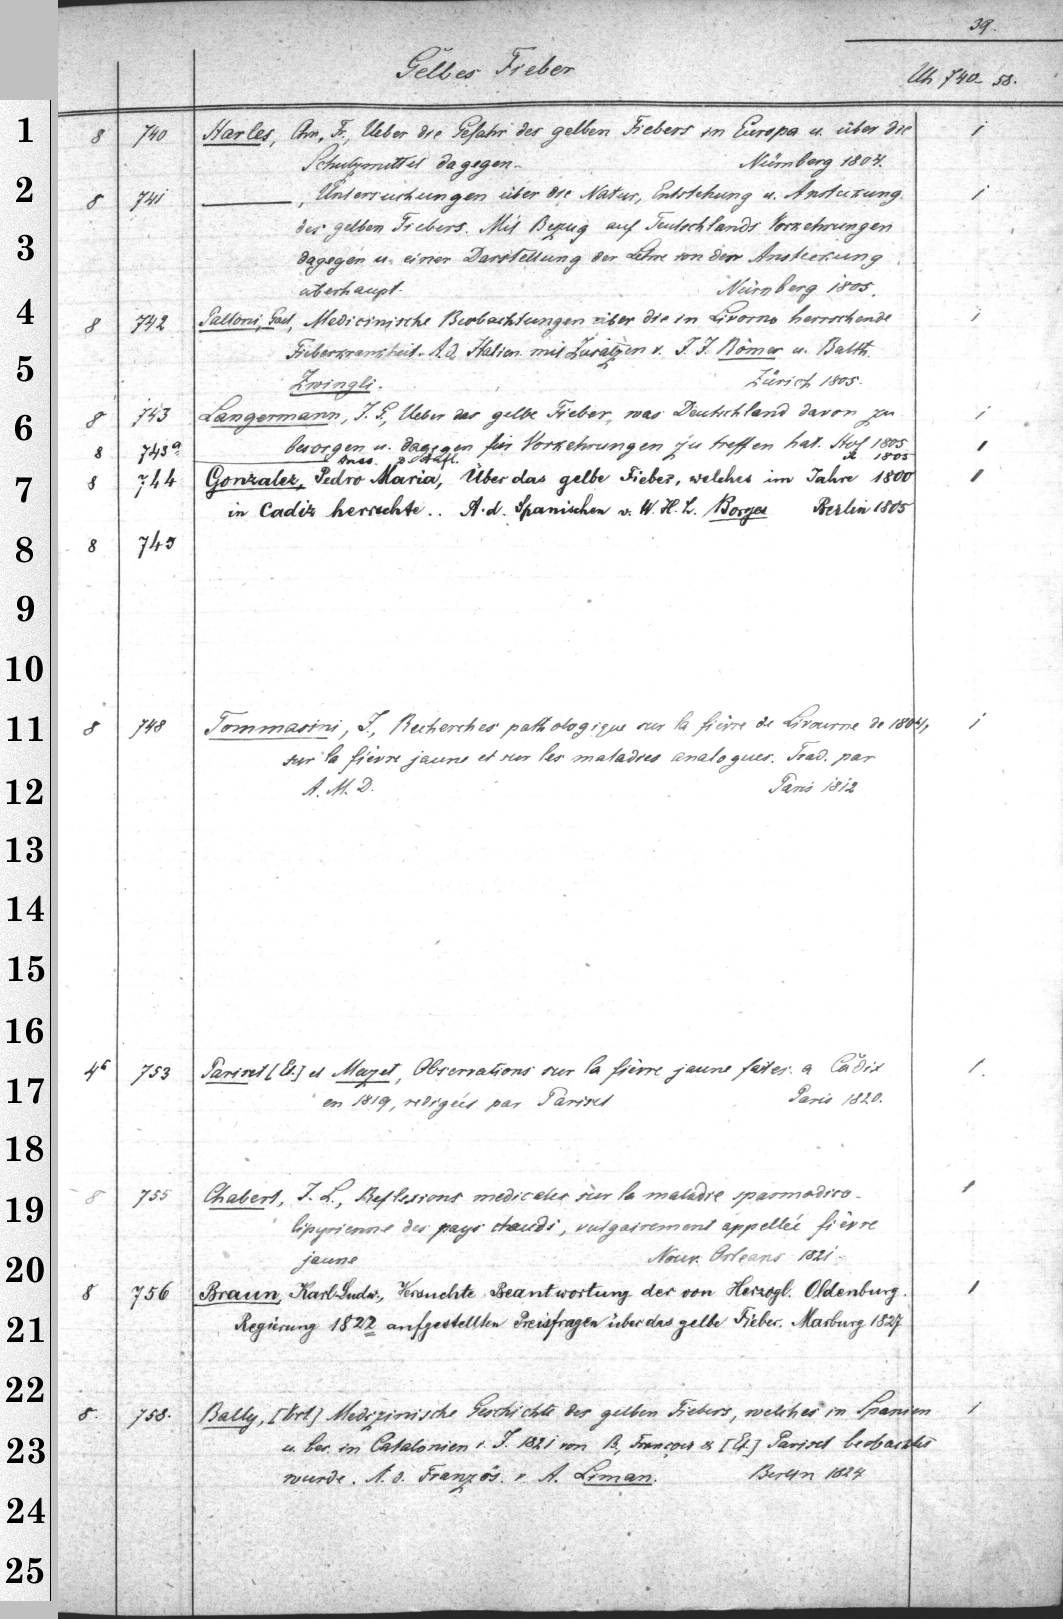 39.
Gelbes Fieber
Uh 740-58.
1
8 740 Harles, Chr. Fr., Ueber die Gefahr des gelben Fiebers in Europa u. über die 1
Schutzmittel dagegen. Nürnberg 1804.
2
8 741 ———, Untersuchungen über die Natur, Entstehung u. Ansteckung 1
des gelben Fiebers. Mit Bezug auf Teutschlands Vorkehrungen
3
dagegen u. einer Darstellung der Lehre von den Ansteckung
überhaupt. Nürnberg 1805.
4
8 742 Palloni, Gaet, Medicinische Beobachtungen über die in Livorno herrschende 1
Fieberkrankheit. A. d. Italien. mit Zusätzen v. J. J. Römer u. Balth.
5
Zwingli. Zürich 1805.
6
8 743 Langermann, J. G., Ueber das gelbe Fieber, was Deutschland davon zu 1
besorgen u. dagegen für Vorkehrungen zu treffen hat. Hof 1805
8 743a ——— 2. Aufl. 1805 1
7
8 744 Gonzalez, Pedro Maria, Über das gelbe Fieber, welches im Jahre 1800 1
in Cadiz herrschte.. A. d. Spanischen v. W. H. L. Borges Berlin 1805
8
8 745
9
10
11
8 748 Tommasini, J., Recherches pathologique sur la fièvre de Livourne de 1804, 1
sur la fièvre jaune et sur les maladies analogues. Trad. par
12
A. M. D. Paris 1812
13
14
15
16
17
4° 753 Pariset [Et.] et Mazet, Observations sur la fièvre jaune faites a Cadix 1.
en 1819, redigées par Pariset Paris 1820.
18
19
8 755 Chabert, J. L., Reflexions medicales sur la maladie spasmodico-1
lipyrienne des pays chauds, vulgairement appellée fièvre
20
jaune Nouv. Orleans 1821.
8 756 Braun, Karl Ludw., Versuchte Beantwortung der von Herzogl. Oldenburg. 1
21
Regierung 1822 aufgestellten Preisfragen über das gelbe Fieber. Marburg 1827
22
8. 758. Bally, [Vct] Medizinische Geschichte des gelben Fiebers, welches in Spanien 1
23
u. bes. in Catalonien i. J. 1821 von B., François & [Et.] Pariset beobachtet
wurde. A. d. Französ. v. A. Liman. Berlin 1824
24
25